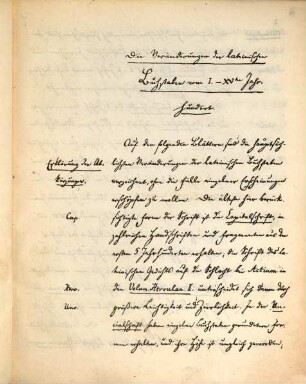 Die Veränderungen der lateinischen
Buchstaben vom I.–XVten Jahr-
hundert
Auf den folgenden Blättern sind die hauptsäch-
Erklärung der Ab-
lichsten Veränderungen der lateinischen Buchstaben
kürzungen.
verzeichnet, ohne die Fülle einzelner Erscheinungen
erschöpfen zu wollen. Die älteste hier berück-
Cap.
sichtigte Form der Schrift ist die Capitalschrift, in
zahlreichen Handschriften und Fragmenten aus den
ersten 5 Jahrhunderten erhalten, die Schrift des la-
teinischen Gedichts auf die Schlacht bei Actium in
den Volum. Herculan. II. unterscheidet sich davon durch
Unc.
größere Leichtigkeit und Zierlichkeit. In der Un-
cialschrift haben einzelne Buchstaben gerundetere For-
men erhalten, und ihre Höhe ist ungleich geworden,